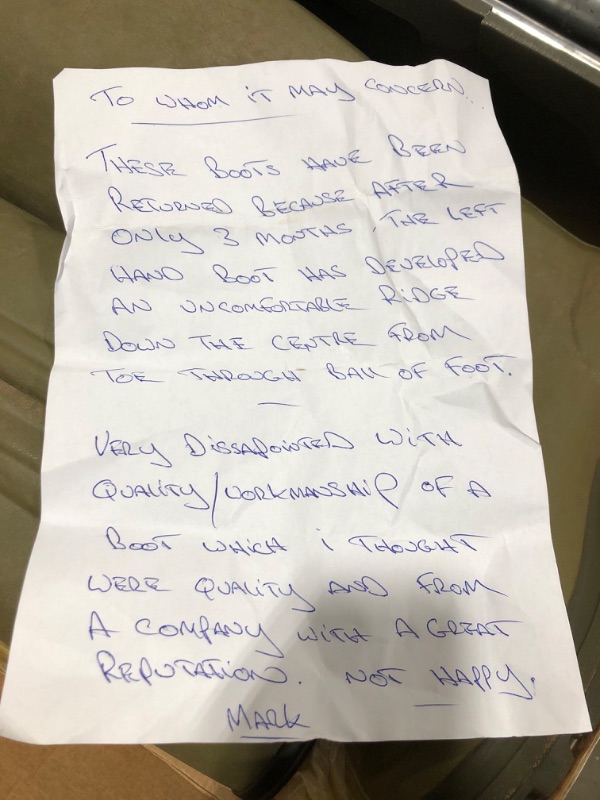 TO WHOM IT MAY CONCERN...
THESE BOOTS HAVE BEEN
RETURNED BECAUSE AFTER
ONLY 3 MONTHS, THE LEFT
HAND BOOT HAS DEVELOPED
AN UNCOMFORTABLE RIDGE
DOWN THE CENTRE FROM
TOE THROUGH BALL OF FOOT.
VERY DISSAPOINTED WITH
QUALITY/WORKMANSHIP OF A
BOOT WHICH i THOUGHT
WERE QUALITY AND FROM
A COMPANY WITH A GREAT
REPUTATION. NOT HAPPY.
MARK